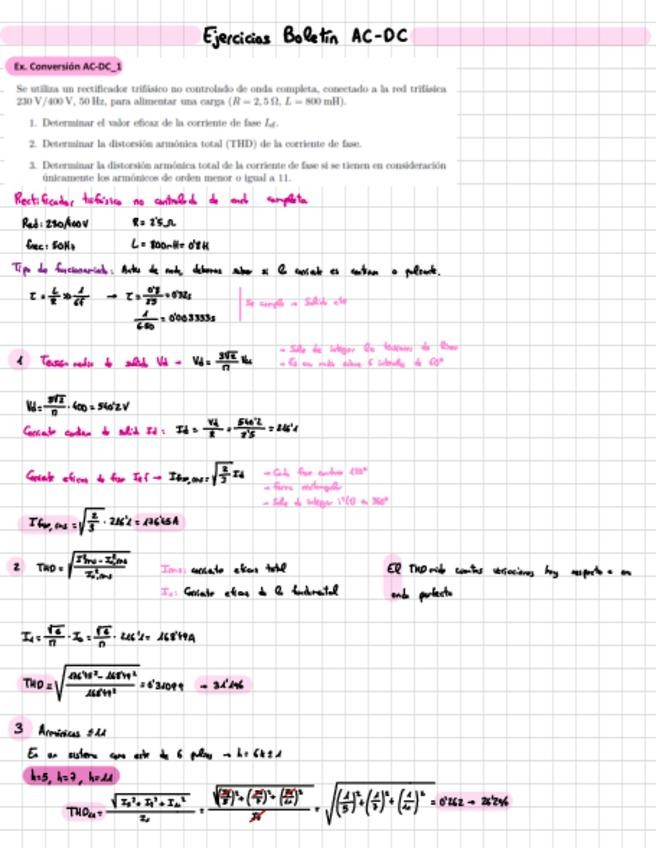 Ejercicios Boletín AC-DC
Ex. Conversión AC-DC_1
Se utiliza un rectificador trifásico no controlado de onda completa, conectado a la red trifásica
230 V/400 V, 50 Hz, para alimentar una carga (R = 2,5 Ω, L = 800 mH).
1. Determinar el valor eficaz de la corriente de fase I_ef.
2. Determinar la distorsión armónica total (THD) de la corriente de fase.
3. Determinar la distorsión armónica total de la corriente de fase si se tienen en consideración
únicamente los armónicos de orden menor o igual a 11.
Rectificador trifásico no controlado de onda completa
Red: 230/400V R = 2'5 Ω
frec: 50Hz L = 800mH = 0'8H
Tipo de funcionamiento: Antes de nada, debemos saber si la corriente es continua o pulsante.
τ = L/R >> 1/6f → τ = 0'8/2'5 = 0'32s
1/6·50 = 0'003333s
Se cumple →
1 Tensión media de salida Vd → Vd = 3√2/π
→ Sale de integrar las tensiones de línea
6 intervalos de 60°
Vd = 3√2/π · 400 = 540'2V
Corriente continua de salida Id: Id = Vd/R = 540'2/2'5 = 216'1
Corriente eficaz de fase Ief → Ifase,rms = √(2/3) Id
→ Cada fase conduce 120°
→ Forma rectangular
→ Sale de integrar i²(t) en 360°
Ifase,rms = √(2/3) · 216'1 = 176'45A
2 THD = √((I²rms - I²1,rms)/I²1,rms)
Irms: corriente eficaz total
I1: Corriente eficaz de la fundamental
El THD mide cuantas variaciones hay respecto a una
onda perfecta
I1 = √6/π · Id = √6/π · 216'1 = 168'49A
THD = √((176'45² - 168'49²)/168'49²) = 0'31099 → 31'1%
3 Armónicos ≤11
En un sistema como este de 6 pulsos → h = 6k±1
h=5, h=7, h=11
THD11 = √(I5² + I7² + I11²)/I1 = √((I1/5)² + (I1/7)² + (I1/11)²)/I1 = √((1/5)² + (1/7)² + (1/11)²) = 0'262 → 26'2%